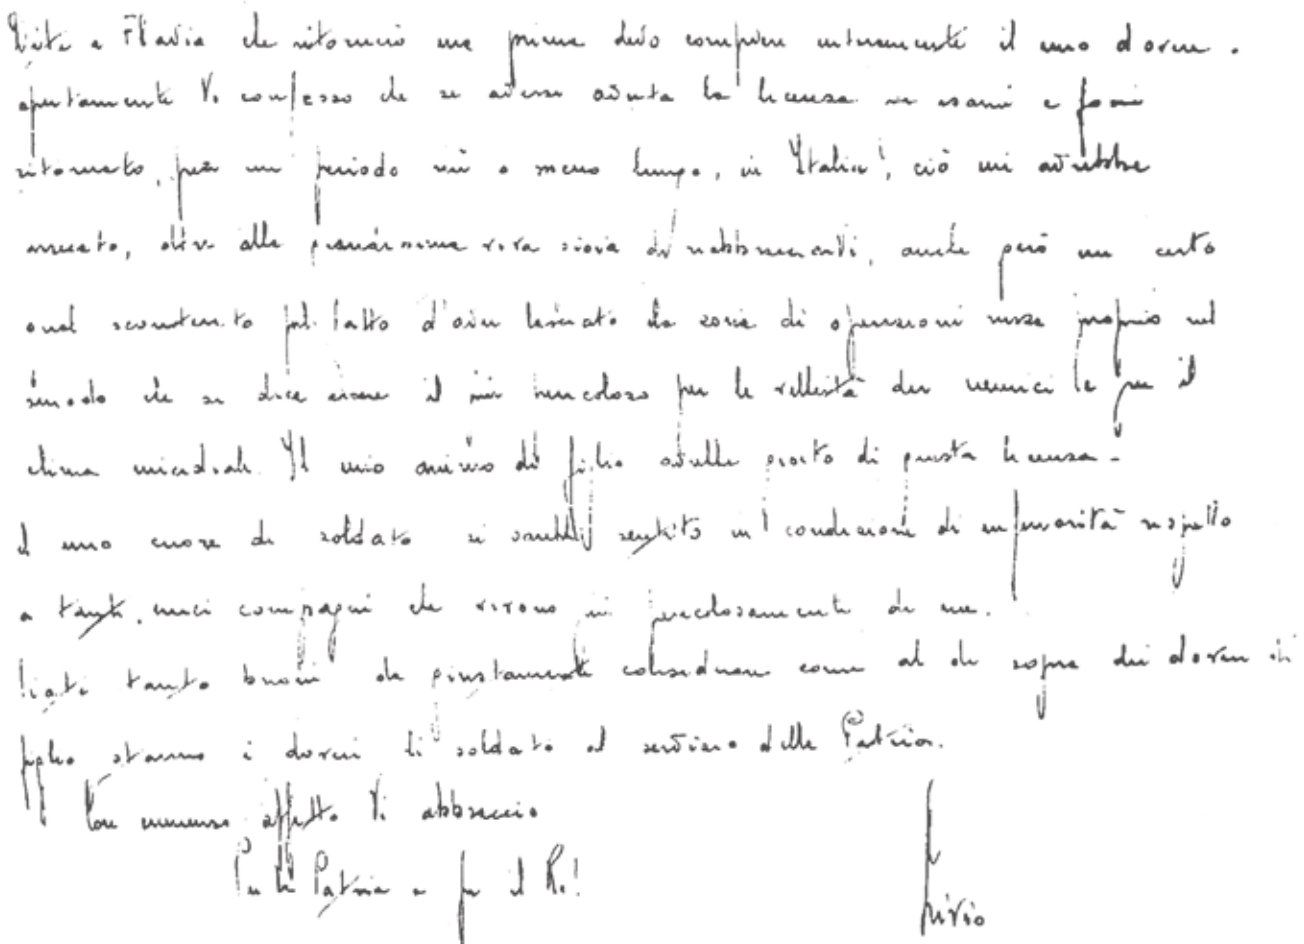 Dite a Flavia che ritornerò ma prima devo compiere interamente il mio dovere.
apertamente Vi confesso che se avessi avuta la licenza e fossi
ritornato, per un periodo più o meno lungo, in Italia, ciò mi avrebbe
arrecato, oltre alla gioia di riabbracciarvi, anche però un certo
qual scontento pel fatto d'aver lasciato la zona di operazioni proprio nel
periodo che si dice essere il più pericoloso per le dei nemici e per il
clima micidiale. Il mio animo di figlio avrebbe gioito di questa licenza -
il mio cuore di soldato si sarebbe sentito in condizione di inferiorità rispetto
a tanti miei compagni che vivono più pericolosamente di me.
Siate tanto buoni da giustamente considerare come al di sopra dei doveri di
figlio stanno i doveri di soldato al servizio della Patria.
Con immenso affetto Vi abbraccio
Per la Patria e per il Re!
Livio